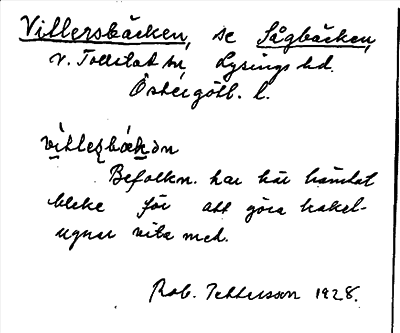 Villersbäcken, se Sågbäcken,
V. Tollstad sn, Lysings hd.
Östergötl. l.
villesbäckən
Befolkn. har här hämtat
bleke för att göra kakel-
ugnar vita med.
Rob. Pettersson 1928.